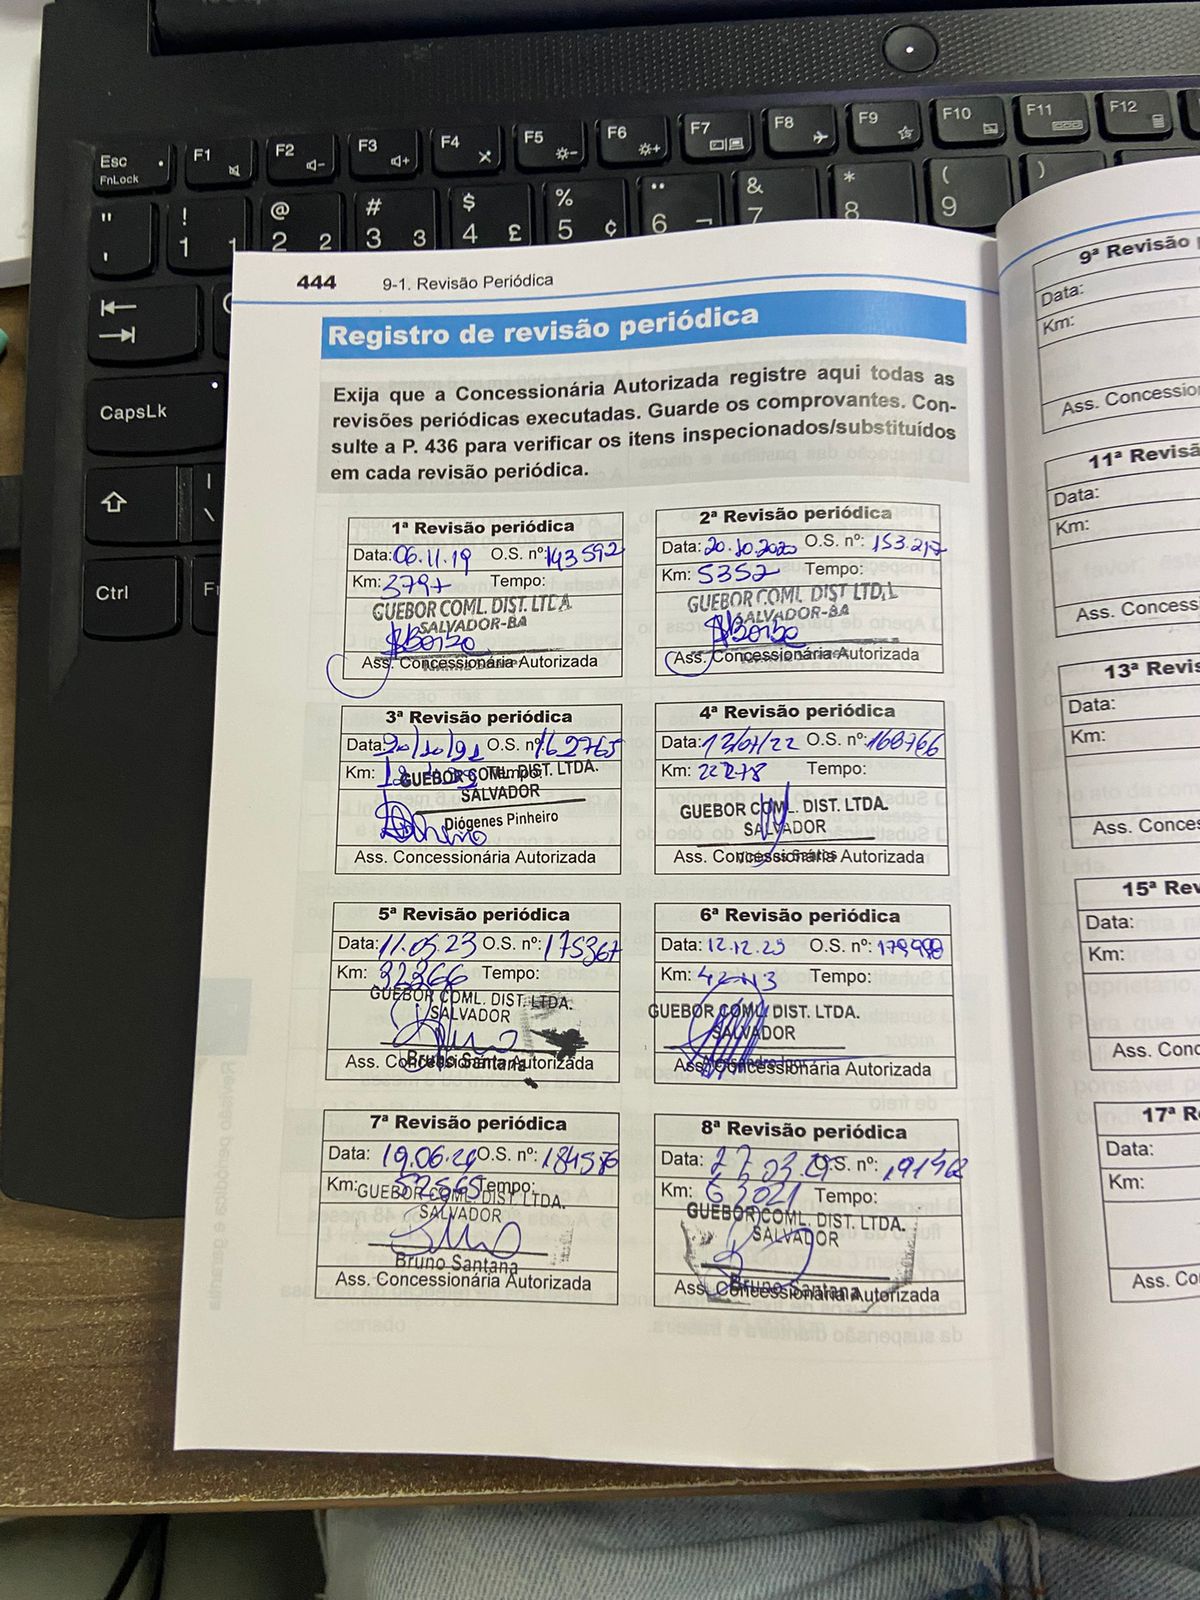 Esc
FnLock
F1
F2
F3
F4
F5
F6
F7
F8
F9
F10
F11
F12
! 1
@ 2 2
# 3 3
$ 4 £
% 5 ¢
6 ¬
& 7
* 8
( 9
)
CapsLk
Ctrl
444 9-1. Revisão Periódica
Registro de revisão periódica
Exija que a Concessionária Autorizada registre aqui todas as
revisões periódicas executadas. Guarde os comprovantes. Con-
sulte a P. 436 para verificar os itens inspecionados/substituídos
em cada revisão periódica.
1ª Revisão periódica
Data: 06.11.19 O.S. nº: 143592
Km: 3797 Tempo:
GUEBOR COML. DIST. LTDA
SALVADOR-BA
Ass. Concessionária Autorizada
2ª Revisão periódica
Data: 20.10.2020 O.S. nº: 153.217
Km: 5352 Tempo:
GUEBOR COML DIST LTDA
SALVADOR-BA
Ass. Concessionária Autorizada
3ª Revisão periódica
Data: O.S. nº 162765
Km: Tempo:
GUEBOR COML. DIST. LTDA.
SALVADOR
Diógenes Pinheiro
Ass. Concessionária Autorizada
4ª Revisão periódica
Data: 13/07/22 O.S. nº: 168766
Km: 22278 Tempo:
GUEBOR COML. DIST. LTDA.
SALVADOR
Ass. Concessionária Autorizada
5ª Revisão periódica
Data: 11.05.23 O.S. nº: 175367
Km: 32366 Tempo:
GUEBOR COML. DIST. LTDA.
SALVADOR
Bruno Santana
Ass. Concessionária Autorizada
6ª Revisão periódica
Data: 12.12.23 O.S. nº:
Km: Tempo:
GUEBOR COML. DIST. LTDA.
SALVADOR
Ass. Concessionária Autorizada
7ª Revisão periódica
Data: 19.06.24 O.S. nº: 184586
Km: 52565 Tempo:
GUEBOR COML. DIST. LTDA.
SALVADOR
Bruno Santana
Ass. Concessionária Autorizada
8ª Revisão periódica
Data: O.S. nº: 191462
Km: 63021 Tempo:
GUEBOR COML. DIST. LTDA.
SALVADOR
Bruno Santana
Ass. Concessionária Autorizada
9ª Revisão
Data:
Km:
Ass.
11ª
Data:
Km:
Ass.
13ª
Data:
Km:
Ass.
15ª
Data:
Km:
Ass.
17ª
Data:
Km:
Ass.